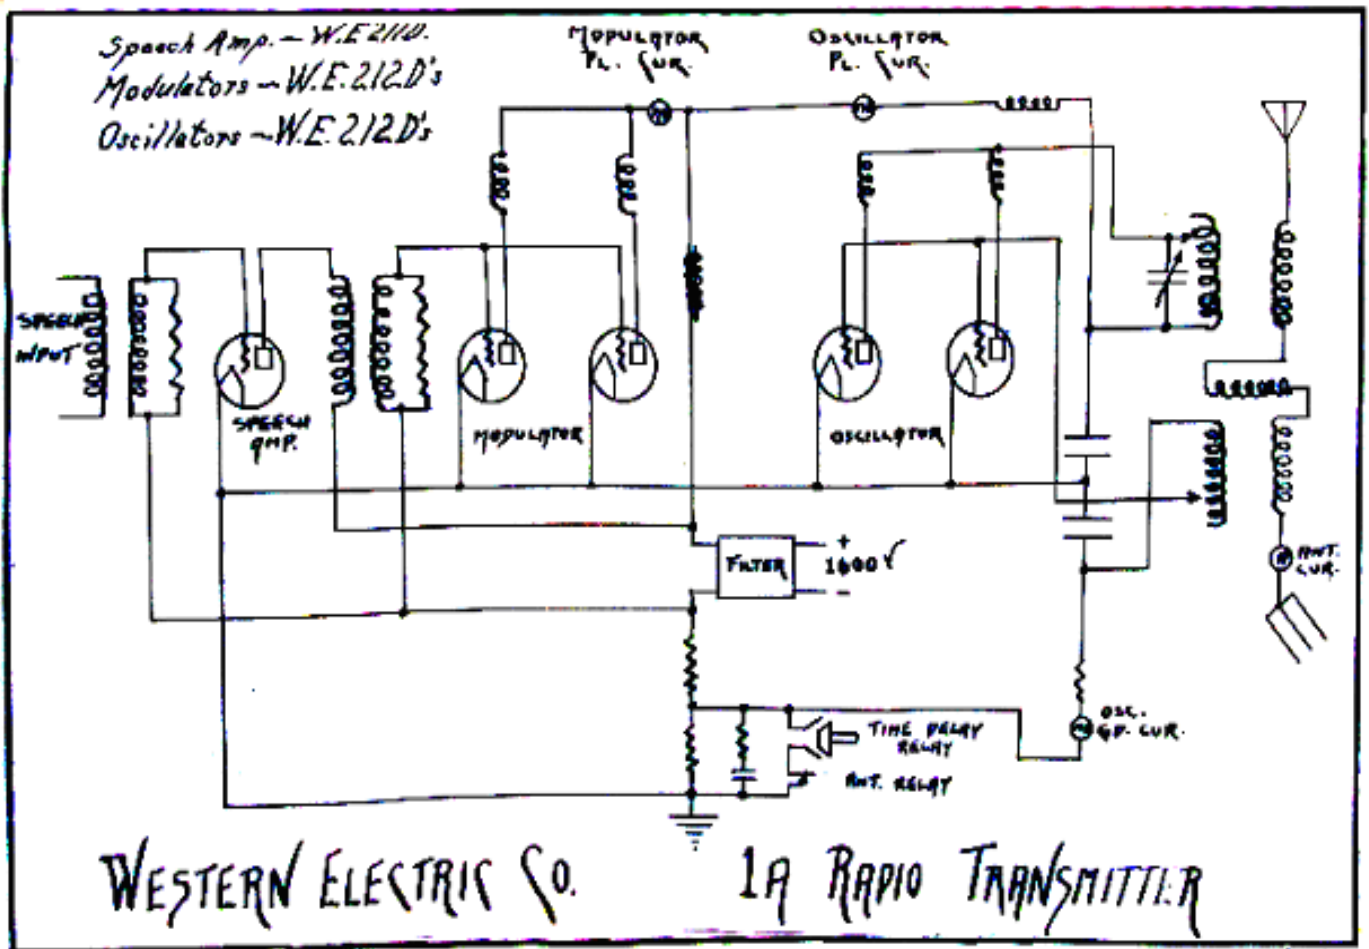 Speech Amp. – W.E 211D.
Modulators – W.E. 212.D's
Oscillators – W.E. 212.D's
MODULATOR
PL. CUR.
OSCILLATOR
PL. CUR.
SPEECH
INPUT
SPEECH
AMP.
MODULATOR
OSCILLATOR
FILTER
+
1600 V
–
ANT.
CUR.
OSC.
GD. CUR.
TIME DELAY
RELAY
ANT. RELAY
WESTERN ELECTRIC CO. 1A RADIO TRANSMITTER